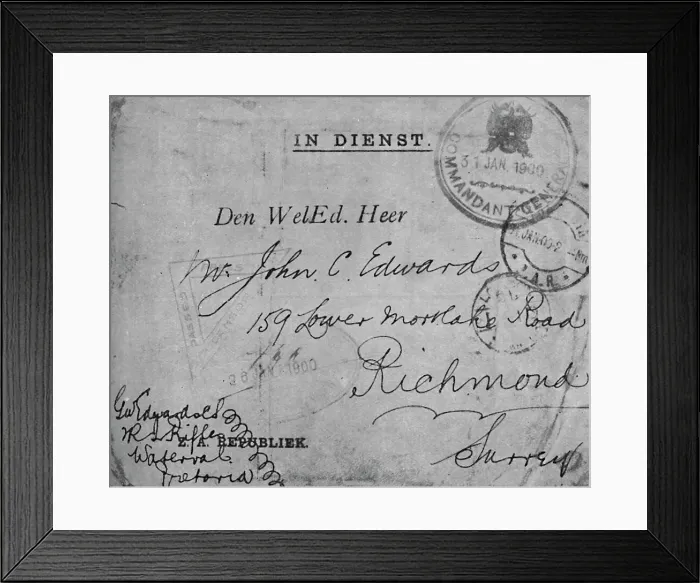 IN DIENST.
COMMANDANT GENERAAL
31 JAN. 1900
Den WelEd. Heer
Mr. John C. Edwards
Z.A.R.
159 Lower Mortlake Road
PASSED
26 JAN 1900
Richmond
Surrey
Waterval
Pretoria
Z. A. REPUBLIEK.